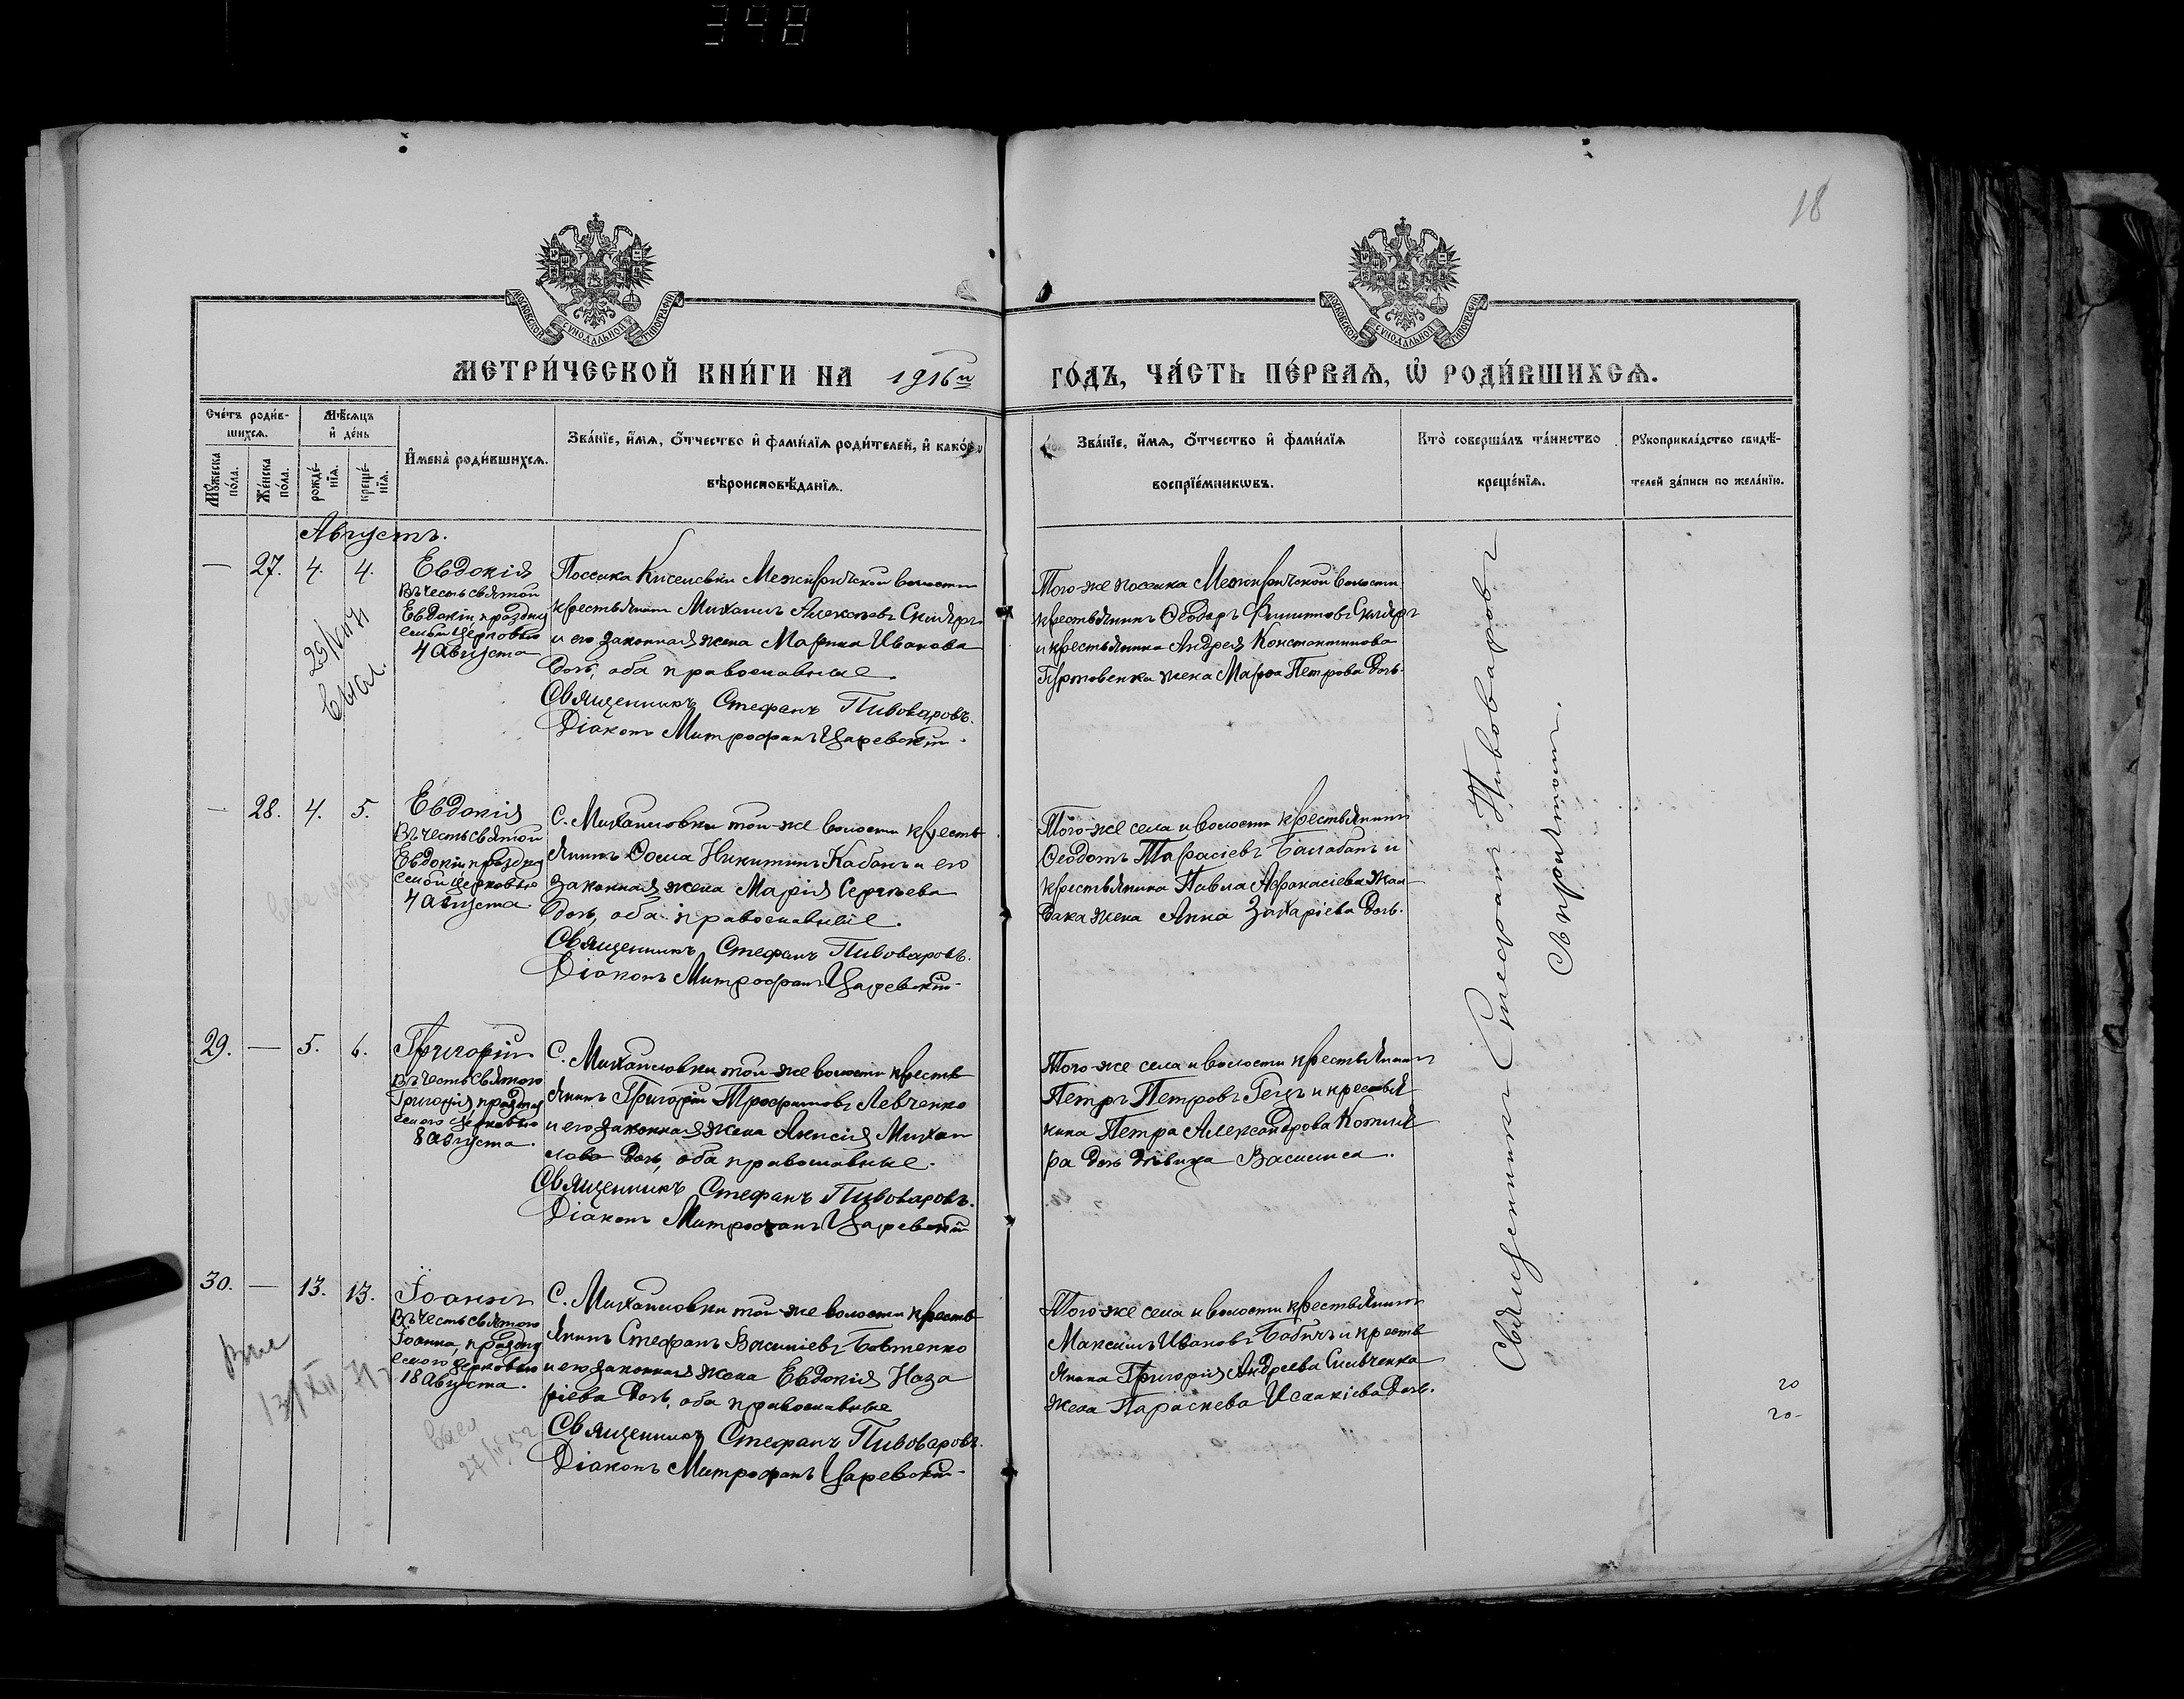 398
18
МОСКОВСКОЙ СѴНОДАЛЬНОЙ ТИПОГРАФІИ
МОСКОВСКОЙ СѴНОДАЛЬНОЙ ТИПОГРАФІИ
МЕТРИ́ЧЕСКОЙ КНИ́ГИ НА 1916й
ГО́ДЪ, ЧА́СТЬ ПЕ́РВАѦ, Ѡ҆ РОДИ́ВШИХСѦ.
Сче́тъ роди́в-
шихсѧ.
Мѣ́сѧцъ
и҆ де́нь
Мꙋ́жеска
по́ла.
Же́нска
по́ла.
рожде́-
нїѧ.
креще́-
нїѧ.
И҆мена̀ роди́вшихсѧ.
Зва́нїе, и҆́мѧ, ѻ҆́тчество и҆ фами́лїѧ роди́телей, и҆ како́гѡ
вѣроисповѣ́данїѧ.
Зва́нїе, и҆́мѧ, ѻ҆́тчество и҆ фами́лїѧ
воспрїе́мникѡвъ.
Кто̀ соверша́лъ та́инство
креще́нїѧ.
Рꙋкоприкла́дство свидѣ́-
телей за́писи по жела́нїю.
Августъ.
— 27. 4. 4.
Евдокія
Въ честь святой
Евдокіи праздну
емой церковью
4 Августа
Поселка Киселевки Межиричской волости
крестьянинъ Михаилъ Алексѣевъ Скляръ
и его законная жена Марина Иванова
дочь, оба православные.
Священникъ Стефанъ Пивоваровъ.
Діаконъ Митрофанъ Царевскій.
Того-же поселка Межиричской волости
крестьянинъ Ѳеодоръ Филиповъ Скляръ
и крестьянина Андрея Константинова
жена Марѳа Петрова дочь.
— 28. 4. 5.
Евдокія
Въ честь святой
Евдокіи праздну
емой церковью
4 Августа.
С. Михайловки той-же волости кресть
янинъ Ѳома Никитинъ Кабанъ и его
законная жена Марія Сергѣева
дочь, оба православные.
Священникъ Стефанъ Пивоваровъ.
Діаконъ Митрофанъ Царевскій.
Того-же села и волости крестьянинъ
Ѳеодотъ Тарасіевъ Балабанъ и
крестьянина Павла Аѳанасіева Жал-
дака жена Анна Захаріева дочь.
29. — 5. 6.
Григорій
Въ честь святого
Григорія праздну
емого церковью
8 Августа.
С. Михайловки той-же волости кресть
янинъ Григорій Трофимовъ Левченко
и его законная жена Анисія Михаи
лова дочь, оба православные.
Священникъ Стефанъ Пивоваровъ.
Діаконъ Митрофанъ Царевскій
Того-же села и волости крестьянинъ
Петръ Петровъ Гецъ и крестья
нина Петра Александрова Котля
ра дочь дѣвица Василиса.
30. — 13. 13.
Іоаннъ
Въ честь святого
Іоанна, праздну
емого церковью
18 Августа.
С. Михайловки той-же волости кресть
янинъ Стефанъ Василіевъ Бовтенко
и его законная жена Евдокія Наза
ріева дочь, оба православные
Священникъ Стефанъ Пивоваровъ.
Діаконъ Митрофанъ Царевскій.
Того-же села и волости крестьянинъ
Максимъ Ивановъ Бабичъ и кресть
янина Григорія Андреева Сливченка
жена Параскева Исаакіева дочь.
Священникъ Стефанъ Пивоваровъ
20
20-